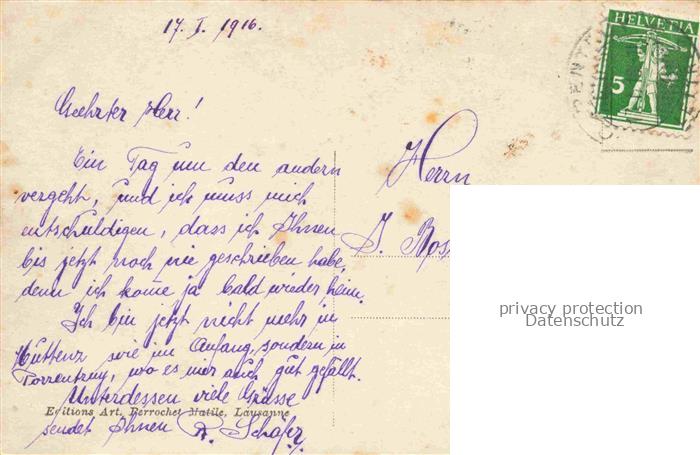 17. I. 1916.
HELVETIA
5
Geehrter Herr!
Ein Tag um den andern
vergeht, und ich muss mich
entschuldigen, dass ich Ihnen
bis jetzt noch nie geschrieben habe,
denn ich kome ja bald wieder heim.
Ich bin jetzt nicht mehr in
Muttenz wie im Anfang, sondern in
Porrentruy, wo es mir auch gut gefällt.
Unterdessen viele Grüsse
sendet Ihnen R. Schäfer
Editions Art. Perrochet Matile, Lausanne
Herrn
J. Ros
privacy protection
Datenschutz